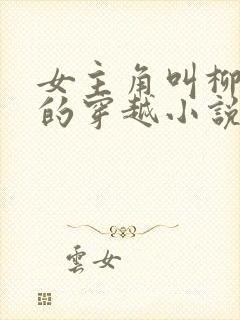 女主角叫柳
的穿越小說
雲女